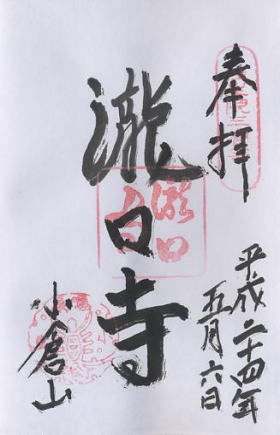 奉拝
平成二十四年
五月六日
瀧口寺
小倉山
瀧口